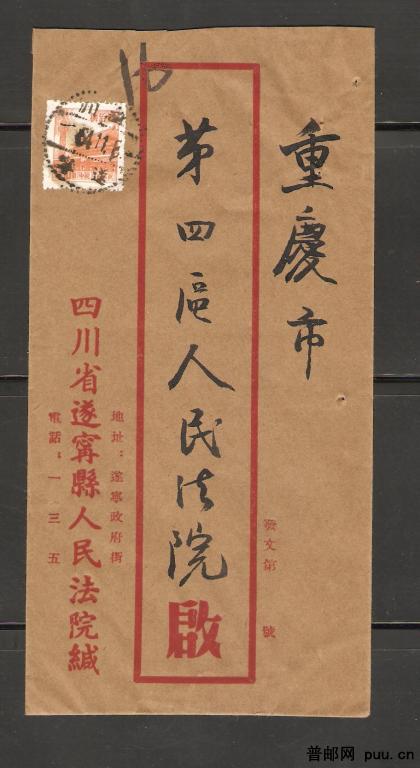 重慶市
發文第 號
第四區人民法院啟
地址：遂寧政府街
四川省遂寧縣人民法院緘
電話：一三五
普邮网 puu.cn